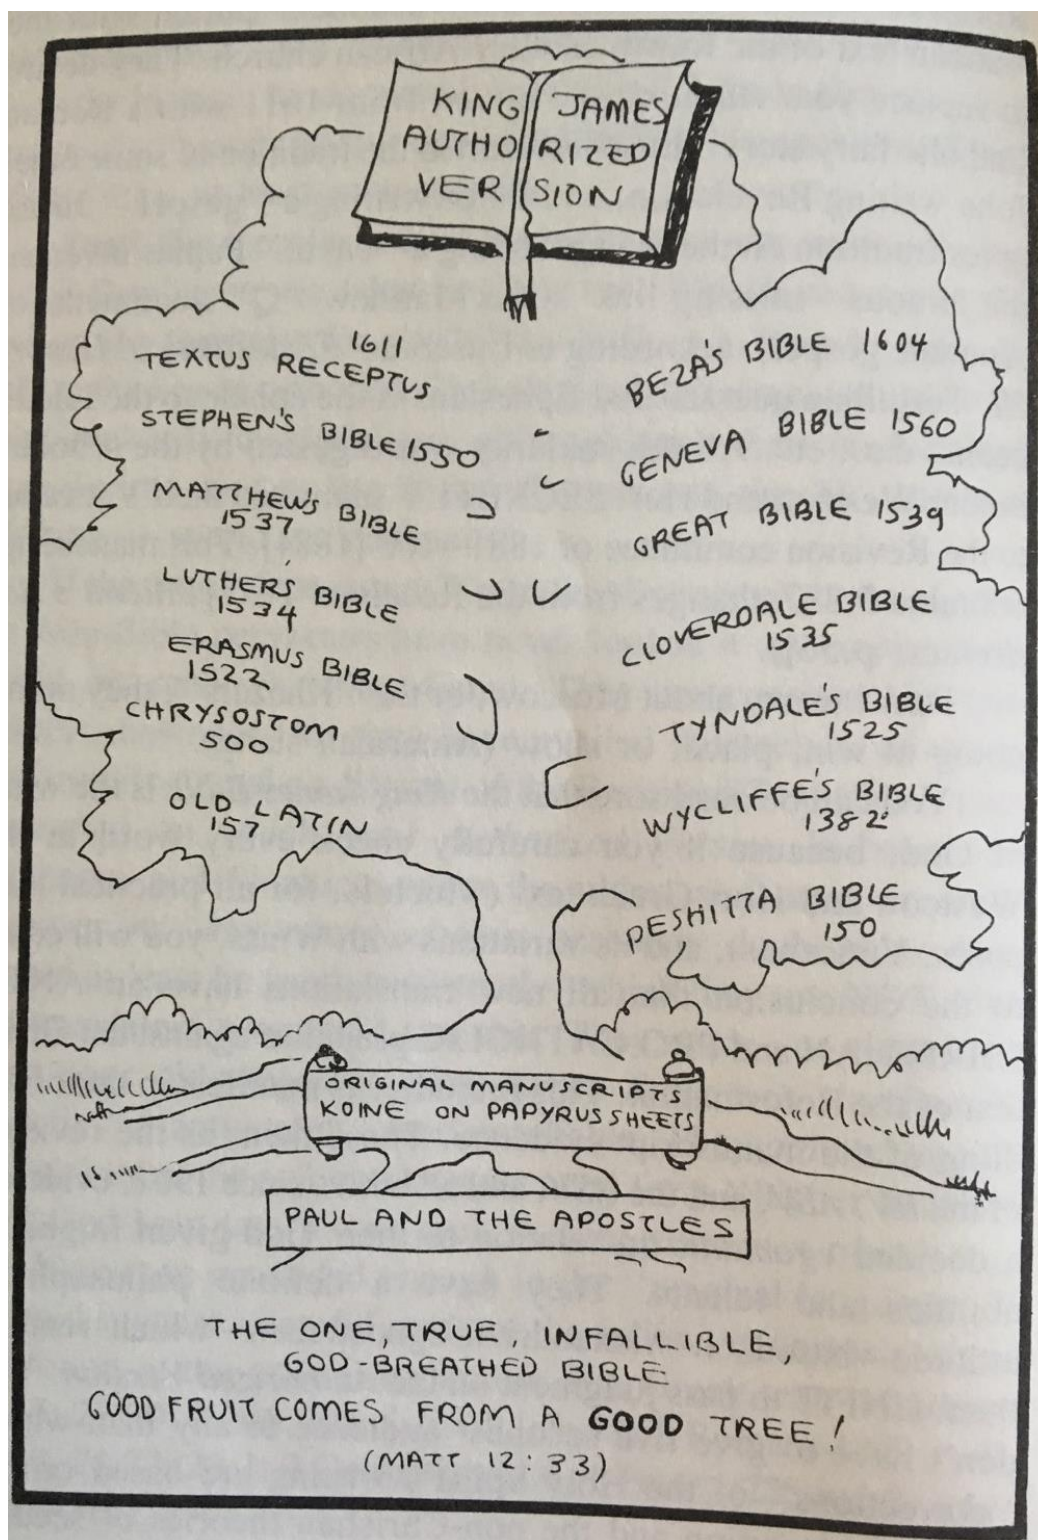 KING JAMES
AUTHORIZED
VERSION
1611
TEXTUS RECEPTUS
STEPHEN'S BIBLE 1550
MATTHEW'S BIBLE
1537
LUTHER'S BIBLE
1534
ERASMUS BIBLE
1522
CHRYSOSTOM
500
OLD LATIN
157
BEZA'S BIBLE 1604
GENEVA BIBLE 1560
GREAT BIBLE 1539
CLOVERDALE BIBLE
1535
TYNDALE'S BIBLE
1525
WYCLIFFE'S BIBLE
1382
PESHITTA BIBLE
150
ORIGINAL MANUSCRIPTS
KOINE ON PAPYRUS SHEETS
PAUL AND THE APOSTLES
THE ONE, TRUE, INFALLIBLE,
GOD-BREATHED BIBLE
GOOD FRUIT COMES FROM A GOOD TREE!
(MATT 12:33)